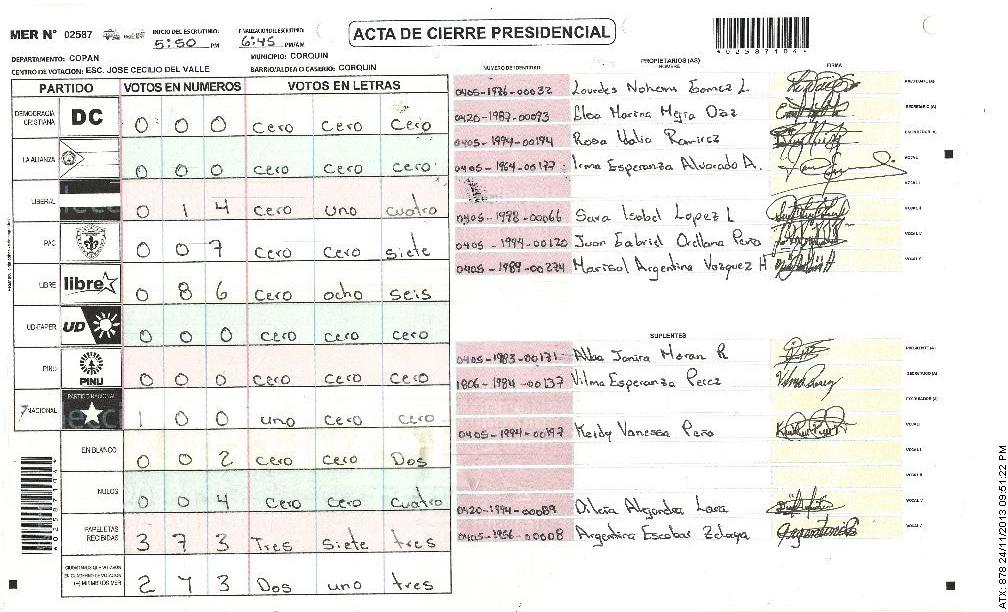 MER N° 02587
INICIO DEL ESCRUTINIO: 5:50 PM
FINALIZACION DEL ESCRUTINIO: 6:45 PM/AM
ACTA DE CIERRE PRESIDENCIAL
4025871044
DEPARTAMENTO: COPAN
MUNICIPIO: CORQUIN
CENTRO DE VOTACION: ESC. JOSE CECILIO DEL VALLE
BARRIO/ALDEA O CASERIO: CORQUIN
PARTIDO VOTOS EN NUMEROS VOTOS EN LETRAS
DEMOCRACIA CRISTIANA DC 0 0 0 cero cero cero
LA ALIANZA 0 0 0 cero cero cero
LIBERAL 0 1 4 cero uno cuatro
PAC 0 0 7 cero cero siete
LIBRE libre 0 8 6 cero ocho seis
UD-FAPER UD 0 0 0 cero cero cero
PINU PINU 0 0 0 cero cero cero
7 NACIONAL PARTIDO NACIONAL 1 0 0 uno cero cero
EN BLANCO 0 0 2 cero cero Dos
NULOS 0 0 4 cero cero cuatro
PAPELETAS RECIBIDAS 3 7 3 Tres siete tres
CIUDADANOS QUE VOTARON EN CUADERNO DE VOTACION (+) MIEMBROS MER 2 1 3 Dos uno tres
PROPIETARIOS (AS)
NUMERO DE IDENTIDAD NOMBRE FIRMA
0405-1976-00032 Lourdes Nohemi Gomez L PRESIDENTE (A)
0420-1987-00093 Elea Marina Mejia Diaz SECRETARIO (A)
0405-1994-00194 Rosa Idalia Ramirez ESCRUTADOR (A)
0405-1964-00177 Irma Esperanza Alvarado A. VOCAL I
0405-1998-00066 Sara Isabel Lopez L
0405-1994-00120 Juan Gabriel Orellana Peña
0405-1989-00274 Marisol Argentina Vazquez H
SUPLENTES
0405-1983-00131 Alba Janira Moran R
1806-1984-00137 Vilma Esperanza Perez
0405-1994-00197 Keidy Vanessa Peña
0420-1994-00089 Dilcia Alejandra Lara
0405-1956-00008 Argentina Escobar Zelaya
4025871044
ATX-878 24/11/2013 09:51:22 PM